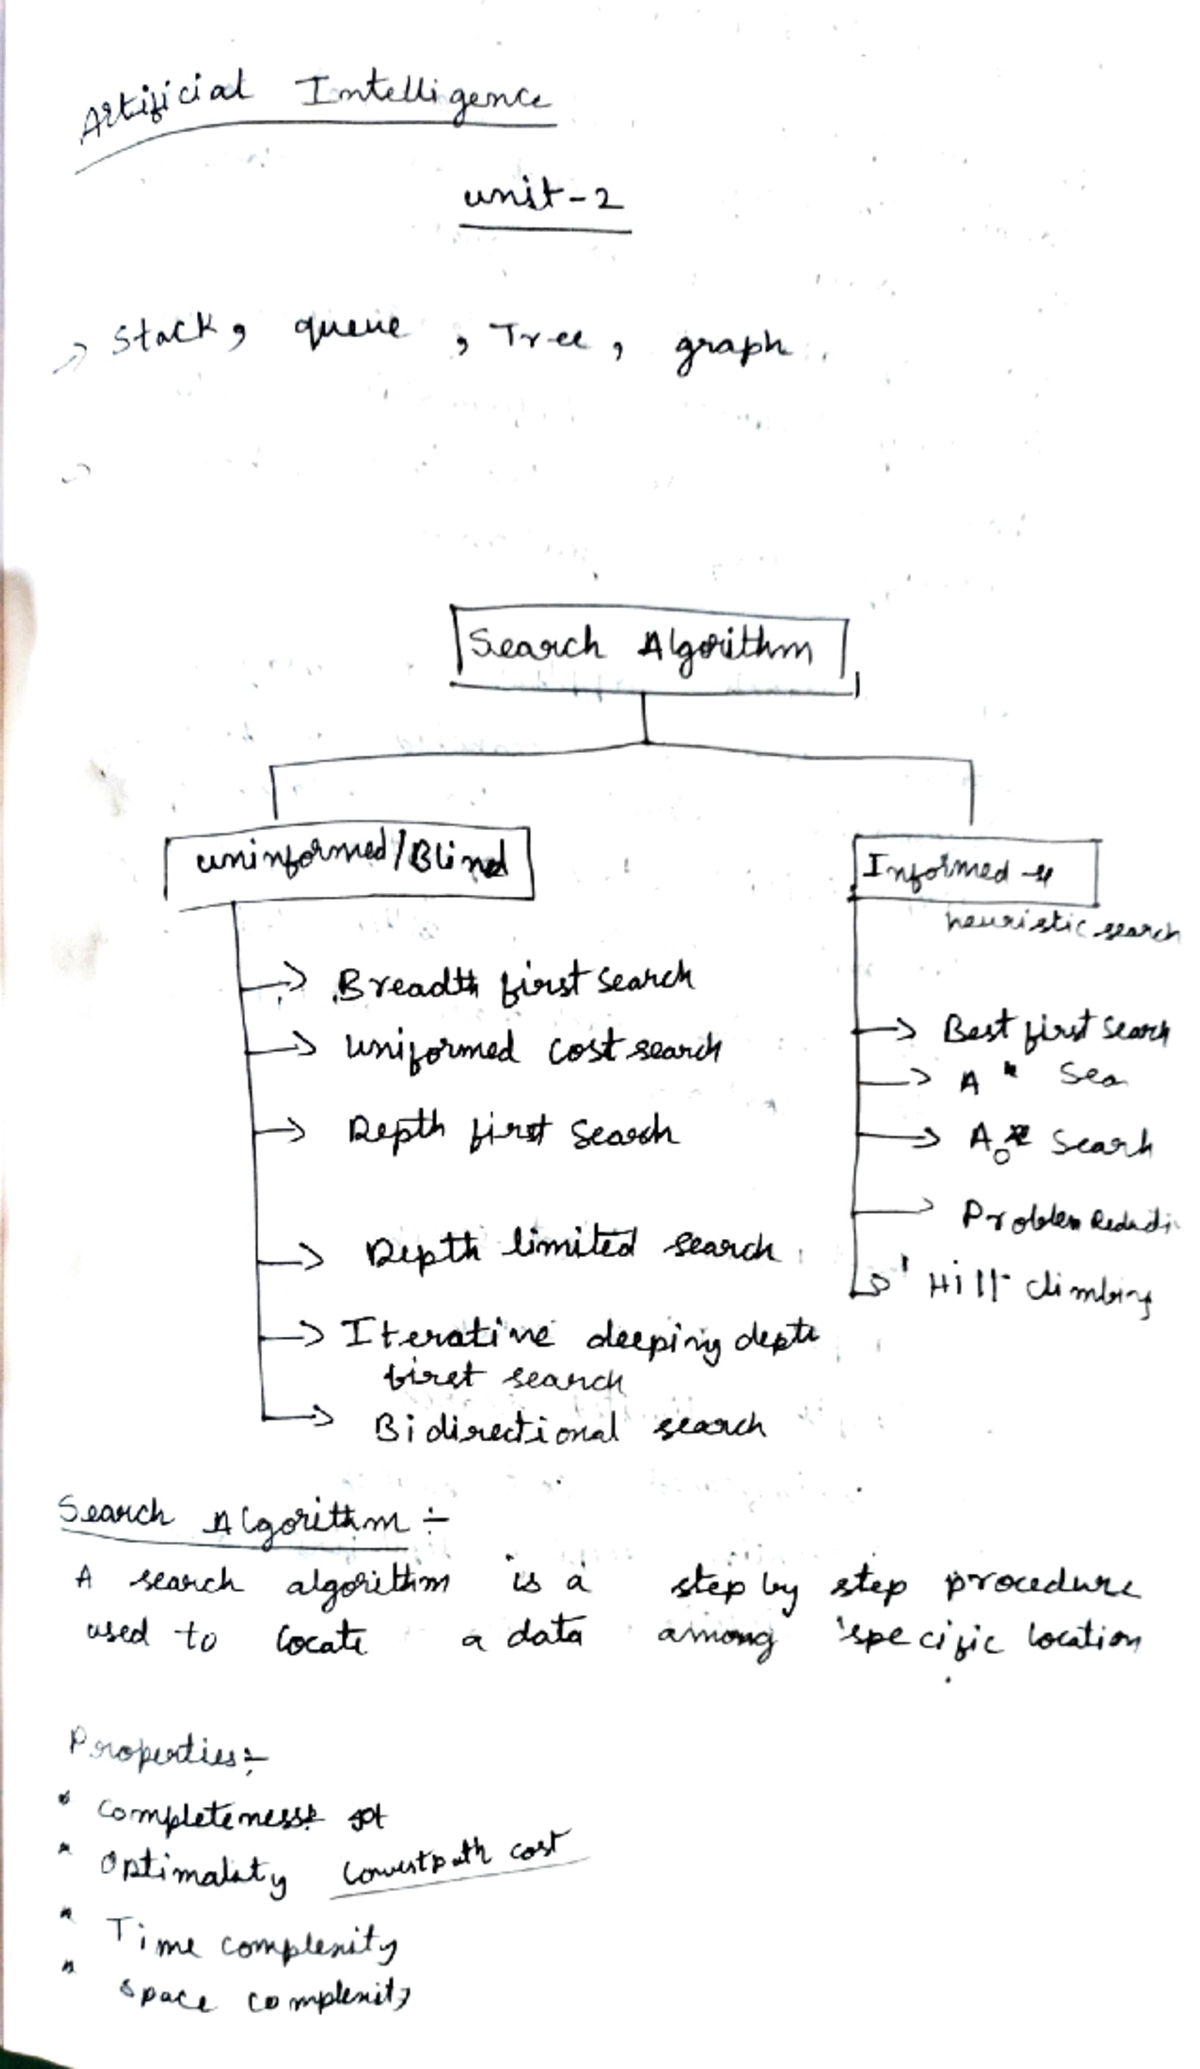 Artificial Intelligence
unit-2
Stack, queue, Tree, graph.
Search Algorithm
uninformed/Blind
Informed
heuristic search
Breadth first search
uniformed cost search
Depth first search
Depth limited search
Iterative deeping depth
first search
Bidirectional search
Best first search
A* Sea
Ao* Search
Problem Reducti
Hill climbing
Search Algorithm:-
A search algorithm is a step by step procedure
used to locate a data among specific location
Properties:-
• completeness
• Optimality lowest path cost
• Time complexity
• space complexity